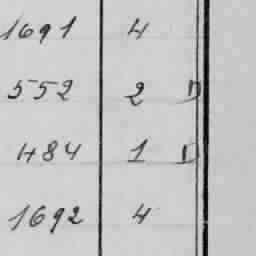 1691 4
552 2 D
484 1 D
1692 4